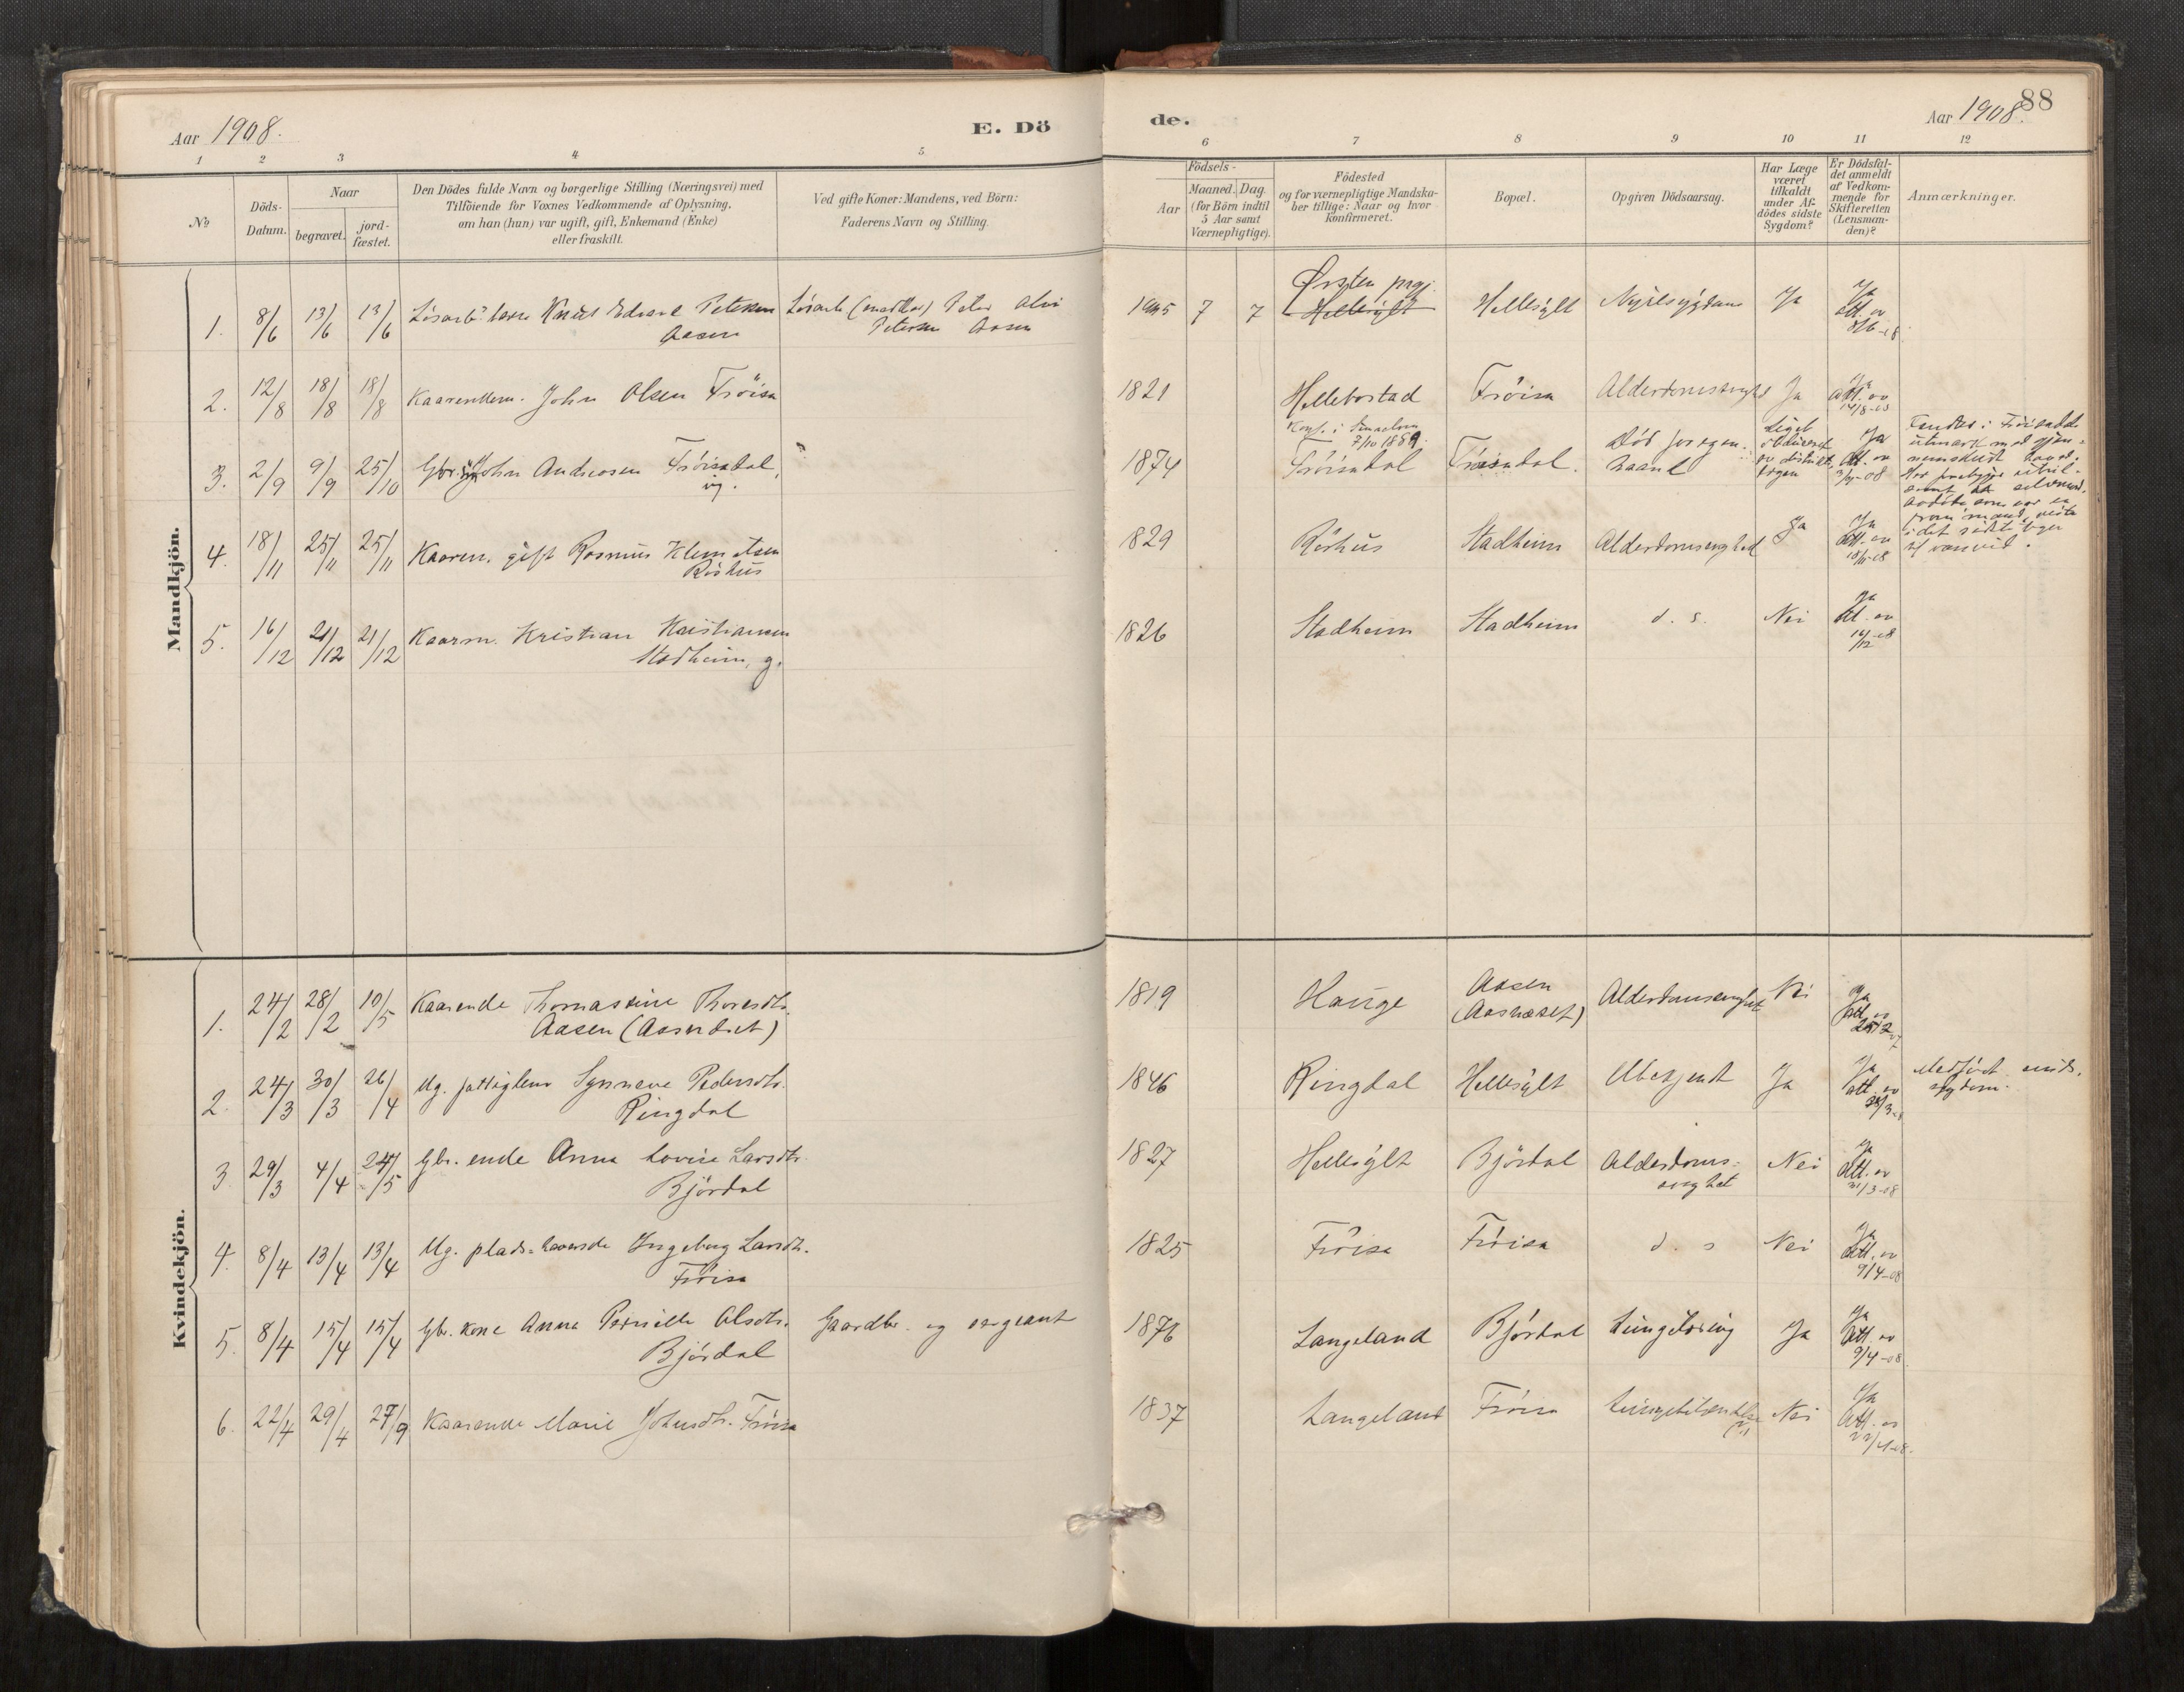 Aar 1908.
E. Dö
de.
Aar 1908.
88
1 2 3 4 5
6 7 8 9 10 11 12
No
Döds-
Datum.
Naar
begravet.
jord-
fæstet.
Den Dödes fulde Navn og borgerlige Stilling (Næringsvei) med
Tilföiende for Voxnes Vedkommende af Oplysning,
om han (hun) var ugift, gift, Enkemand (Enke)
eller fraskilt.
Ved gifte Koner: Mandens, ved Börn:
Faderens Navn og Stilling.
Födsels-
Aar
Maaned. Dag.
(for Börn indtil
5 Aar samt
Værnepligtige).
Födested
og for værnepligtige Mandska-
ber tillige: Naar og hvor
konfirmeret.
Bopæl.
Opgiven Dödsaarsag.
Har Læge
været
tilkaldt
under Af-
dödes sidste
Sygdom?
Er Dödsfal-
det anmeldt
af Vedkom-
mende for
Skifteretten
(Lensman-
den)?
Anmærkninger.
Mandkjön.
1. 8/6 13/6 13/6 Lösarb. barn Knut Edvard Petersen
Aasen
Lösarb. Peter
Petersen Aasen
1905 7 7
Ørsten prgj.
Hellesylt
Hellesylt Nyresygdom Ja
Ja
att. av
8/6-08
2. 12/8 18/8 18/8 Kaarenkem. John Olsen Fröisa
1821 Hellebostad Fröisa Alderdomssvaghet Ja
Ja
att. av
14/8-08
3. 2/9 9/9 25/10 Gbr. sön John Andreasen Fröisadal,
ug.
1874
Konf. i Sunnelven
7/10 1889.
Fröisadal Fröisadal.
Död for egen
haand
Liget
obduceret
av distrikts-
lægen
Ja
Att. av
3/9-08
Fandtes i Fröisadal
utmark med gjen-
nemskudt hoved.
4. 18/11 25/11 25/11 Kaarm. gift Rasmus Klemetsen
Röshus
1829 Röshus Stadheim Alderdomssvaghed Ja
Ja
Att. av
18/11-08
5. 16/12 21/12 21/12 Kaarm. Kristian Kristiansen
Stadheim, g.
1826 Stadheim Stadheim d. s. Nei
Ja
Att. av
16/12-08
Kvindekjön.
1. 24/2 28/2 10/5 Kaarenke Thomassine Thoresdtr.
Aasen (Aasnæset)
1819 Hauge
Aasen
(Aasnæset)
Alderdomssvaghet Nei
Ja
att. av
2. 24/3 30/3 26/4 Ug. fattiglem Synneve Pedersdtr.
Ringdal
1846 Ringdal Hellesylt Ubekjendt Ja
Ja
att. av
Medfödt sinds-
sygdom.
3. 29/3 4/4 24/5 Gbr. enke Anna Lovise Larsdtr.
Björdal
1827 Hellesylt Björdal
Alderdoms-
svaghet
Nei
Ja
Att. av
31/3-08
4. 8/4 13/4 13/4 Ug. plads-havende Ingeborg Larsdtr.
Fröisa
1825 Fröisa Fröisa d. s Nei
Ja
Att. av
9/4-08
5. 8/4 15/4 15/4 Gbr. kone Anna Pernille Olsdtr.
Björdal
Gaardbr. og sergeant
1876 Langeland Björdal Lungetæring Ja
Ja
Att. av
9/4-08
6. 22/4 29/4 27/9 Kaarenke Marie Johnsdtr. Fröisa
1837 Langeland Fröisa Lungebetændelse Nei
Ja
Att. av
22/4-08.